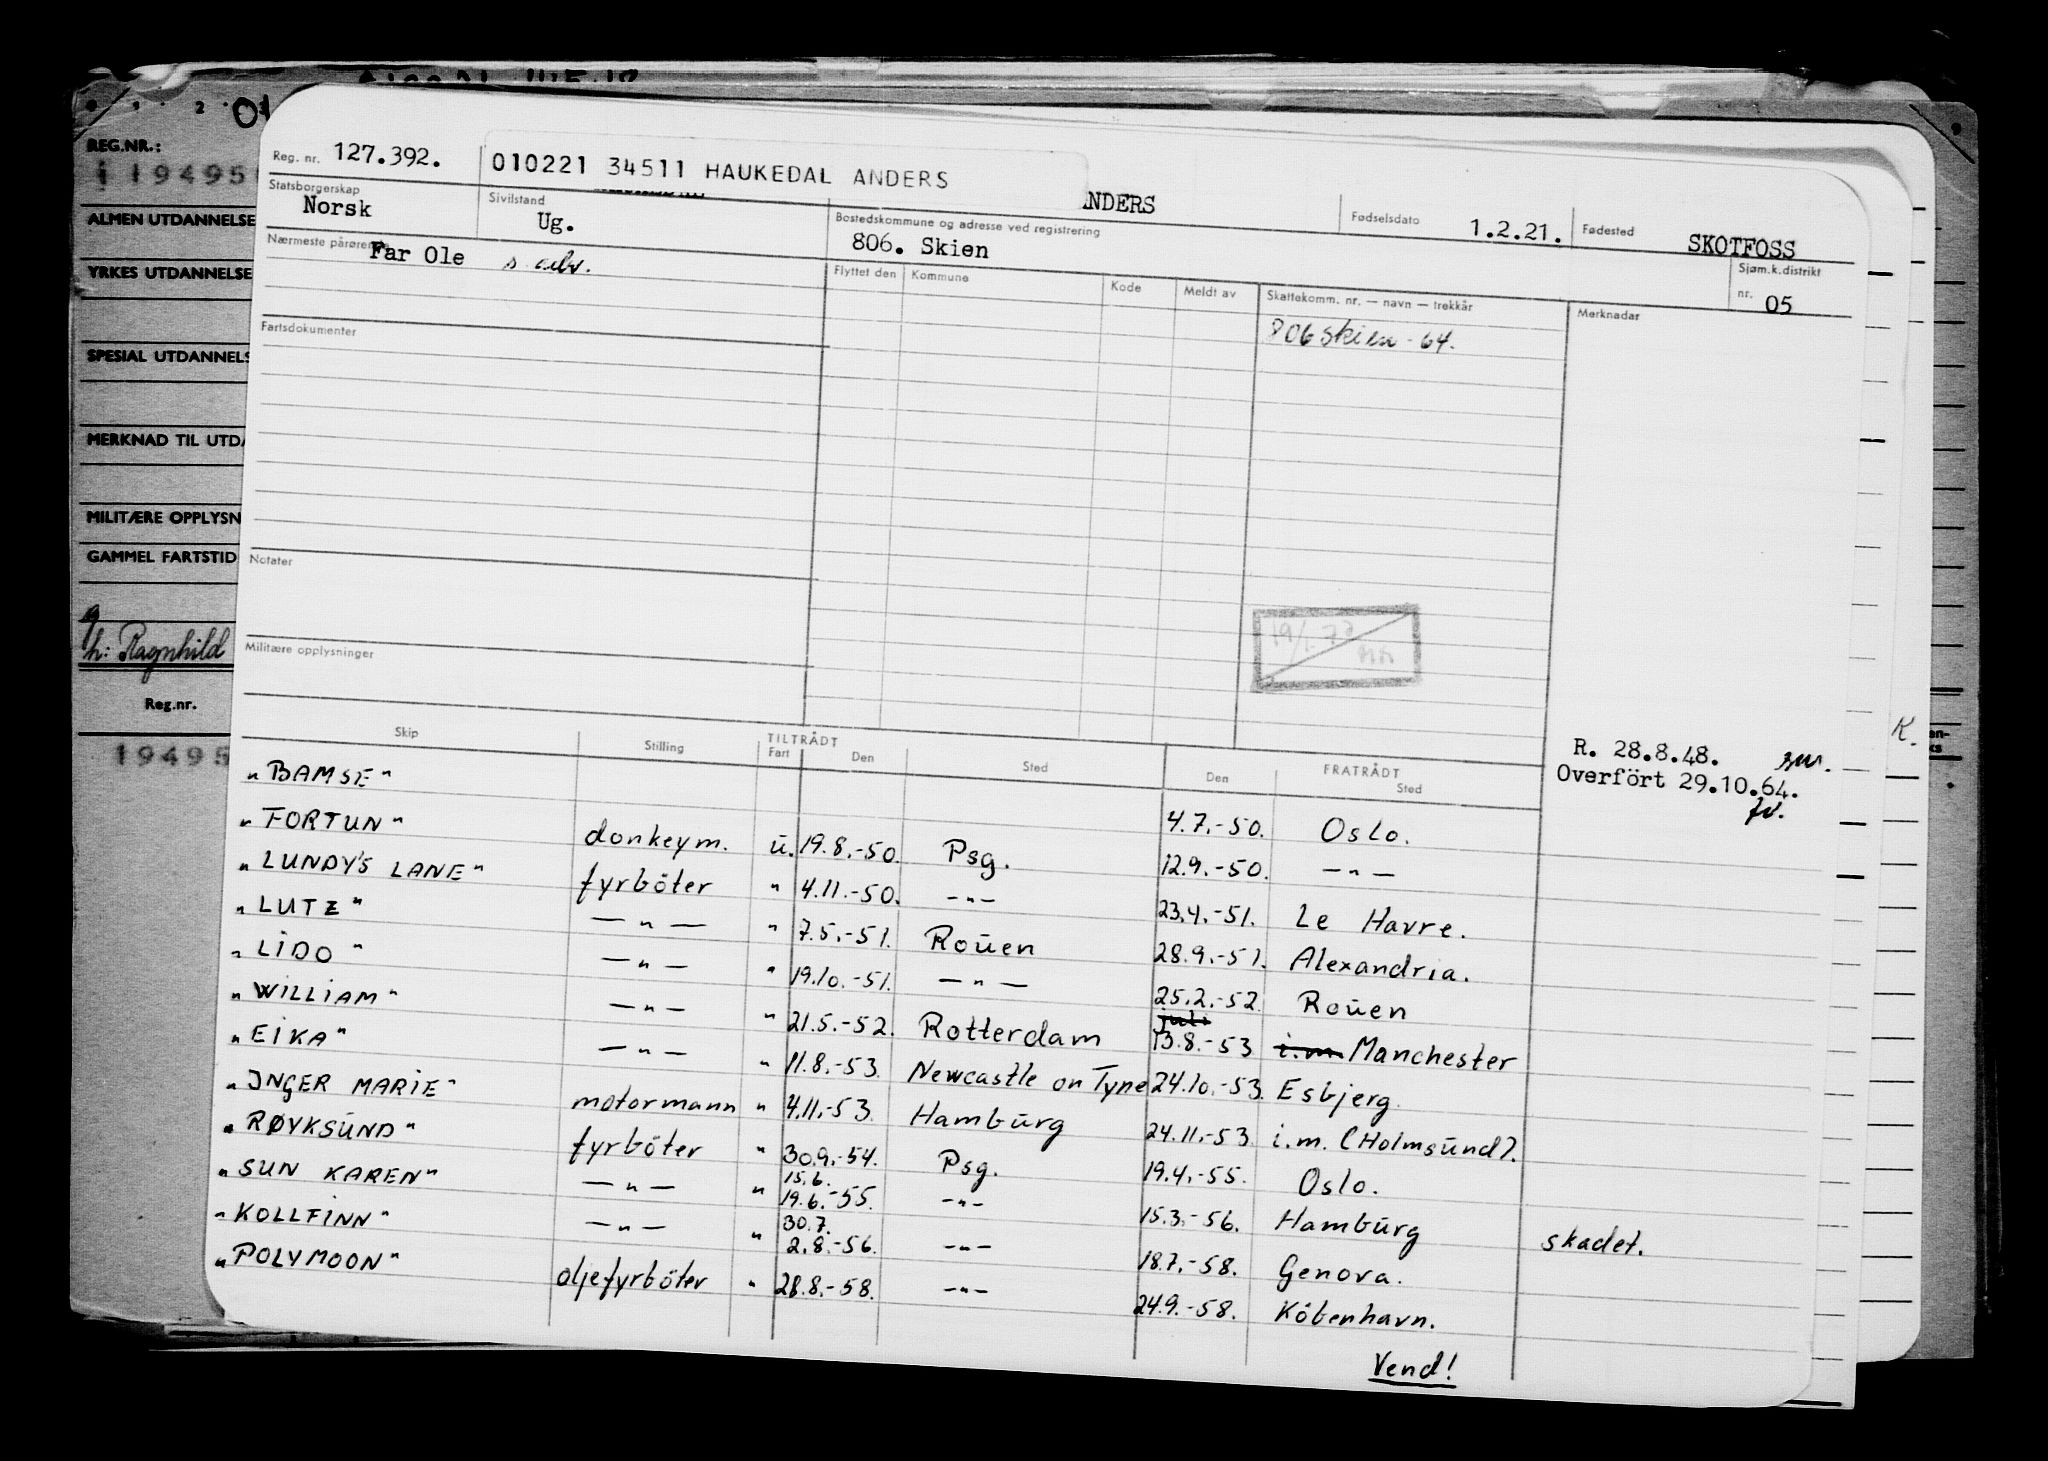 REG.NR.:
19495
ALMEN UTDANNELSE
YRKES UTDANNELSE
SPESIAL UTDANNELS
MERKNAD TIL UTDA
MILITÆRE OPPLYSN
GAMMEL FARTSTID
h: Ragnhild
Reg.nr.
19495
Reg. nr. 127.392. 010221 34511 HAUKEDAL ANDERS
NDERS Fødselsdato 1.2.21. Fødested SKOTFOSS
Statsborgerskap Norsk Sivilstand Ug. Bostedskommune og adresse ved registrering 806. Skien Sjøm.k.distrikt nr. 05
Nærmeste pårørende Far Ole s. adr.
Flyttet den Kommune Kode Meldt av Skattekomm. nr. — navn — trekkår Merknadar
806 Skien - 64.
Fartsdokumenter
Notater
19/1.72
Militære opplysninger
R. 28.8.48.
Overfört 29.10.64.
Skip Stilling TILTRÅDT Fart Den Sted FRATRÅDT Den Sted
"BAMSE" 4.7.-50. Oslo.
"FORTUN" donkeym. u. 19.8.-50. Psg. 12.9.-50. — " —
"LUNDY'S LANE" fyrböter " 4.11.-50. -"- 23.4.-51. Le Havre.
"LUTZ" — " — " 7.5.-51. Roüen 28.9.-51. Alexandria.
"LIDO" — " — " 19.10.-51. — " — 25.2.-52. Roüen
"WILLIAM" — " — " 21.5.-52. Rotterdam juli 13.8.-53 i.m. Manchester
"EIKA" — " — " 11.8.-53. Newcastle on Tyne 24.10.-53. Esbjerg.
"INGER MARIE" motormann " 4.11.-53. Hambürg 24.11.-53. i.m. (Holmsünd).
"RØYKSÜND" fyrböter " 30.9.-54. Psg. 19.4.-55. Oslo.
"SUN KAREN" — " — " 15.6. 19.6.-55. -"- 15.3.-56. Hambürg skadet.
"KOLLFINN" — " — " 30.7. 2.8.-56. -"- 18.7.-58. Genova.
"POLYMOON" oljefyrböter " 28.8.-58. -"- 24.9.-58. Köbenhavn.
Vend!
K.